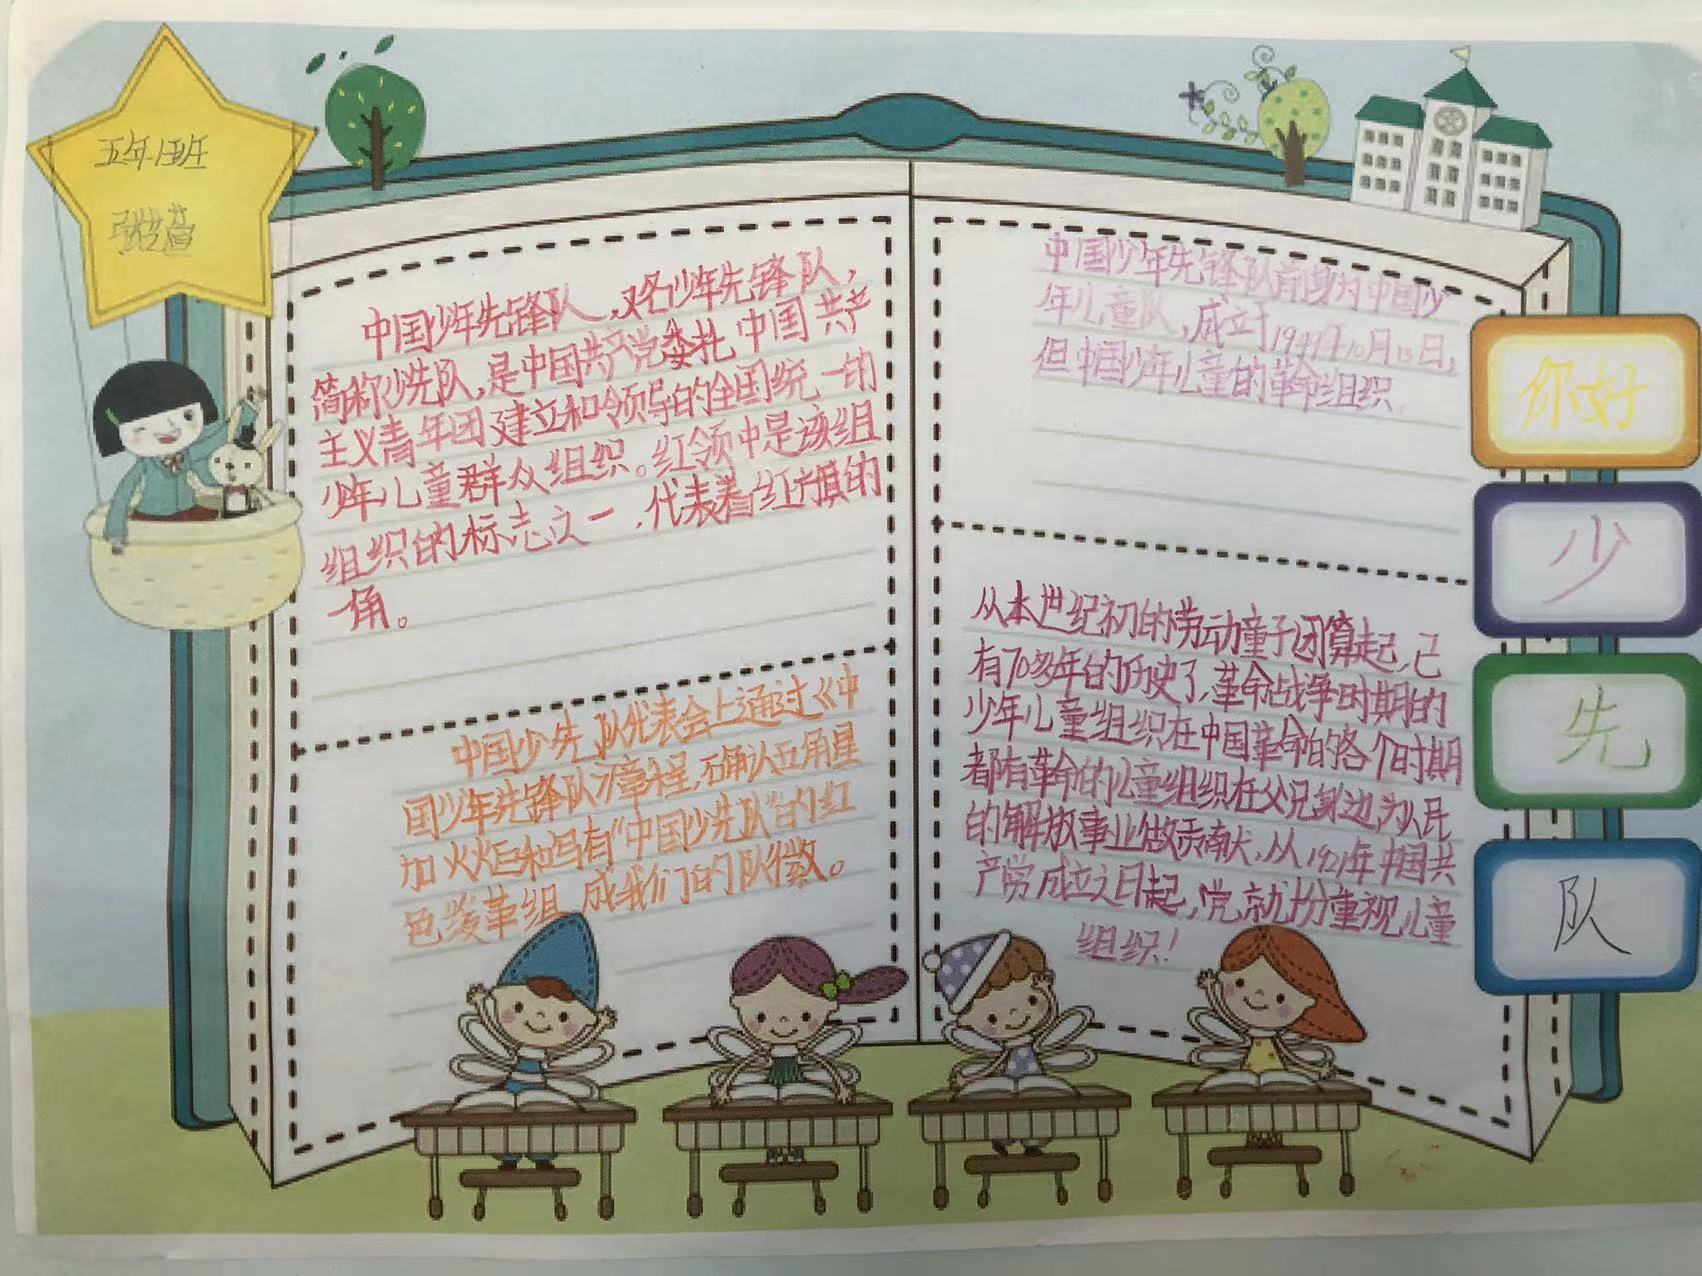 五年1班
中国少年先锋队,又名少年先锋队,
简称少先队,是中国共产党委托中国共产
主义青年团建立和领导的全国统一的
少年儿童群众组织。红领巾是该组
组织的标志之一,代表着红旗的
一角。
中国少先队代表会上通过《中
国少年先锋队队章程,确认五角星
加火炬和写有“中国少先队”的红
色绶带组成我们的队徽。
中国少年先锋队前身为中国少
年儿童队,成立于1949年10月13日,
但中国少年儿童的革命组织
从本世纪初的劳动童子团算起,已
有70多年的历史了,革命战争时期的
少年儿童组织在中国革命的各个时期
都有革命的儿童组织在父兄身边为人民
的解放事业做贡献,从1921年中国共
产党成立之日起,党就十分重视儿童
组织!
你好
少
先
队